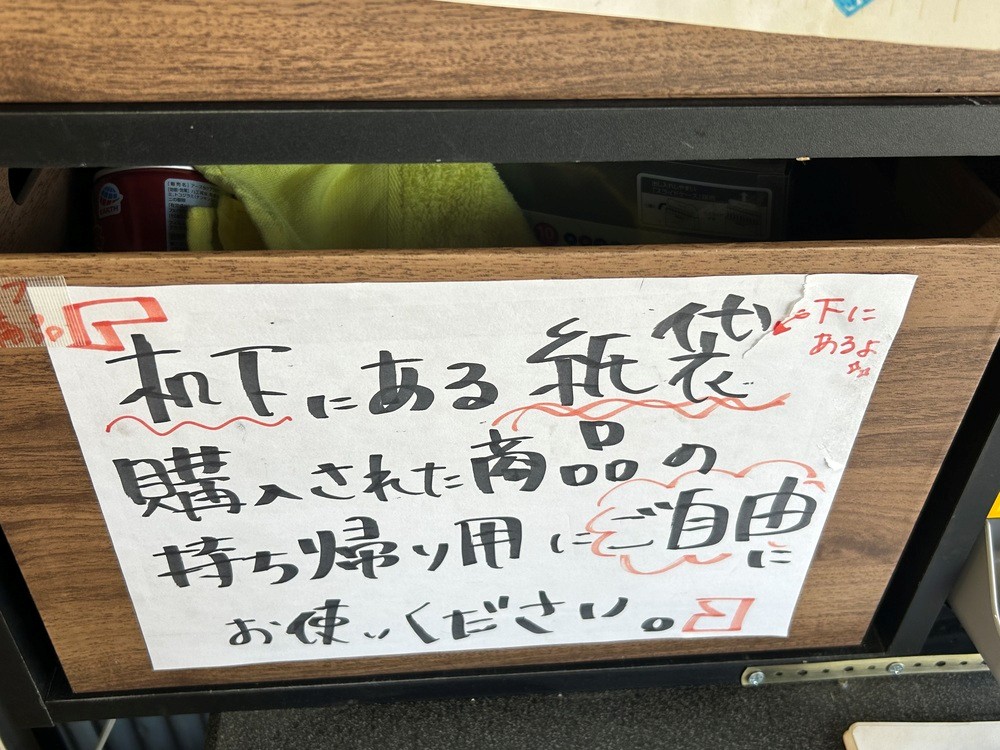 机下にある紙袋
下に
あるよ
購入された商品の
持ち帰り用にご自由に
お使いください。